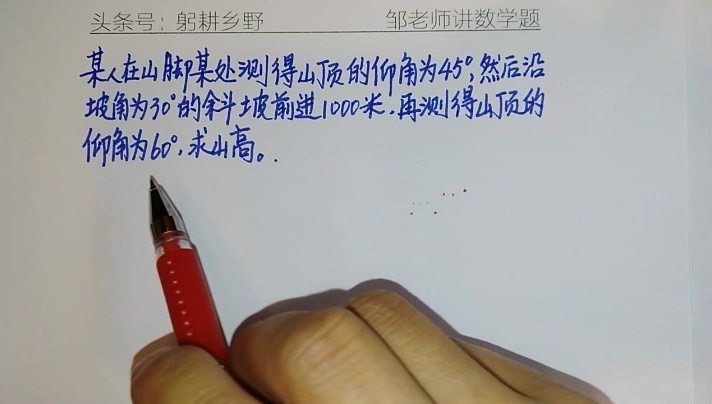 头条号：躬耕乡野 邹老师讲数学题
某人在山脚某处测得山顶的仰角为45°,然后沿
坡角为30°的斜坡前进1000米.再测得山顶的
仰角为60°,求山高。